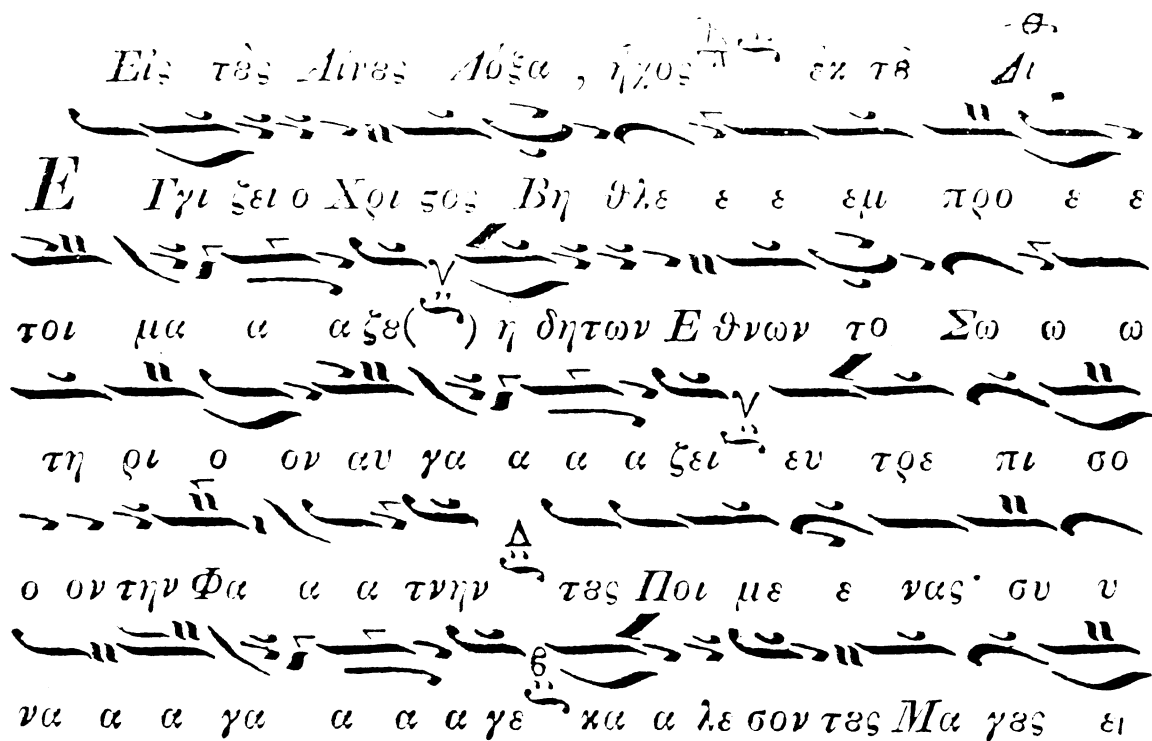 Εἰς τȣ̀ς Αἴνȣς Δόξα, ἦχος ἐκ τȣ̃ Δι
Ε Γγι ζει ο Χρι ϛος Βη θλε ε ε εμ προ ε ε
τοι μα α α ζȣ( ) η δητων Ε θνων το Σω ω ω
τη ρι ο ον αυ γα α α α ζει ευ τρε πι σο
ο ον την Φα α α τνην Δ τȣς Ποι με ε νας· συ υ
να α α γα α α α γε κα α λε σον τȣς Μα γȣς ει